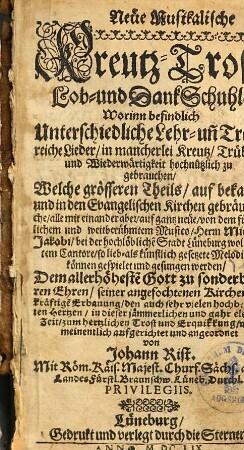 Neüe Musikalische
Kreutz-Tros
Lob-und DankSchuhl
Worinn befindlich
Unterschiedliche Lehr-uñ Tro
reiche Lieder/ in mancherlei Kreutz/ Trüb
und Wiederwärtigkeit hochnützlich zu
gebrauchen/
Welche grösseren Theils/ auf beka
und in den Evangelischen Kirchen gebräu
che/alle mit einander aber/auf gantz neüe/von dem für
lichem und weitberühmtem Musico/Herrn Mic
Jakobi/ bei der hochlöbliche Stadt Lüneburg wol
tem Cantore/so lieb-als künstlich gesetzte Melodi
können gespielet und gesungen werden/
Dem allerhöheste Gott zu sonderb
ren Ehren/ seiner angefochtenen Kirchen
kräftige Erbauung/ den auch sehr vielen hochb
ten Hertzen/ in dieser jämmerlichen und gahr ele
Zeit/ zum hertzlichen Trost und Erquikkung/
meinentlich aufgerichtet und angeordnet
von
Johann Rist.
Mit Röm. Käis. Majest. Churf. Sächs.
Landes Fürstl. Braunschw. Lüneb. Durchl.
PRIVILEGIIS.
Lüneburg/
Gedrukt und verlegt durch die Sterne
ANNO M DC LIX